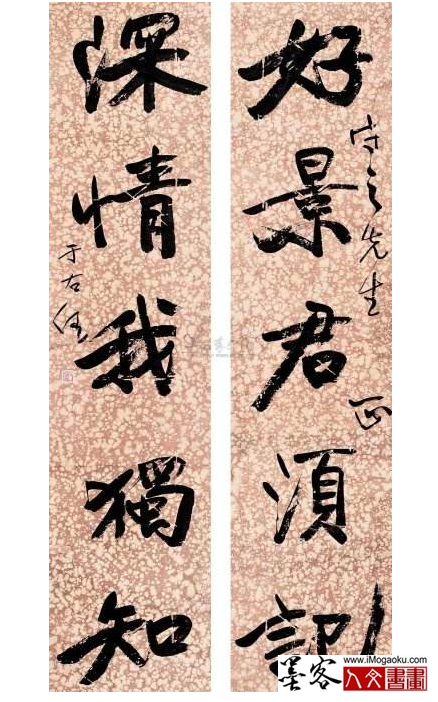 好景君須記
守之先生
正
深情我獨知
于右任
墨客
www.iMogaoku.com
人文書畫